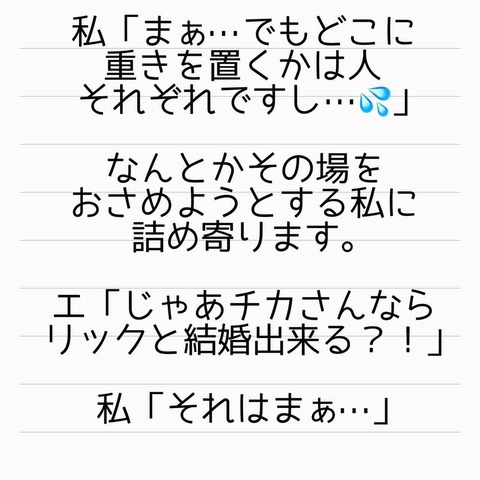 私「まぁ…でもどこに
重きを置くかは人
それぞれですし…💦」
なんとかその場を
おさめようとする私に
詰め寄ります。
エ「じゃあチカさんなら
リックと結婚出来る？！」
私「それはまぁ…」